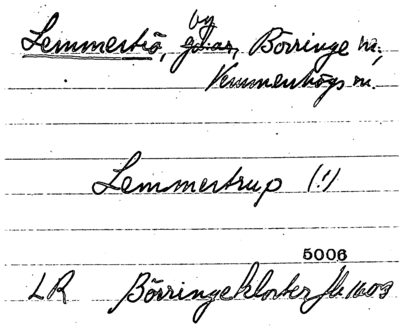 by
Lemmertrö, gårar, Börringe sn.,
Vemmenhögs m.
Lemmertrup (!)
5006
LR Börringekloster Jb 1603